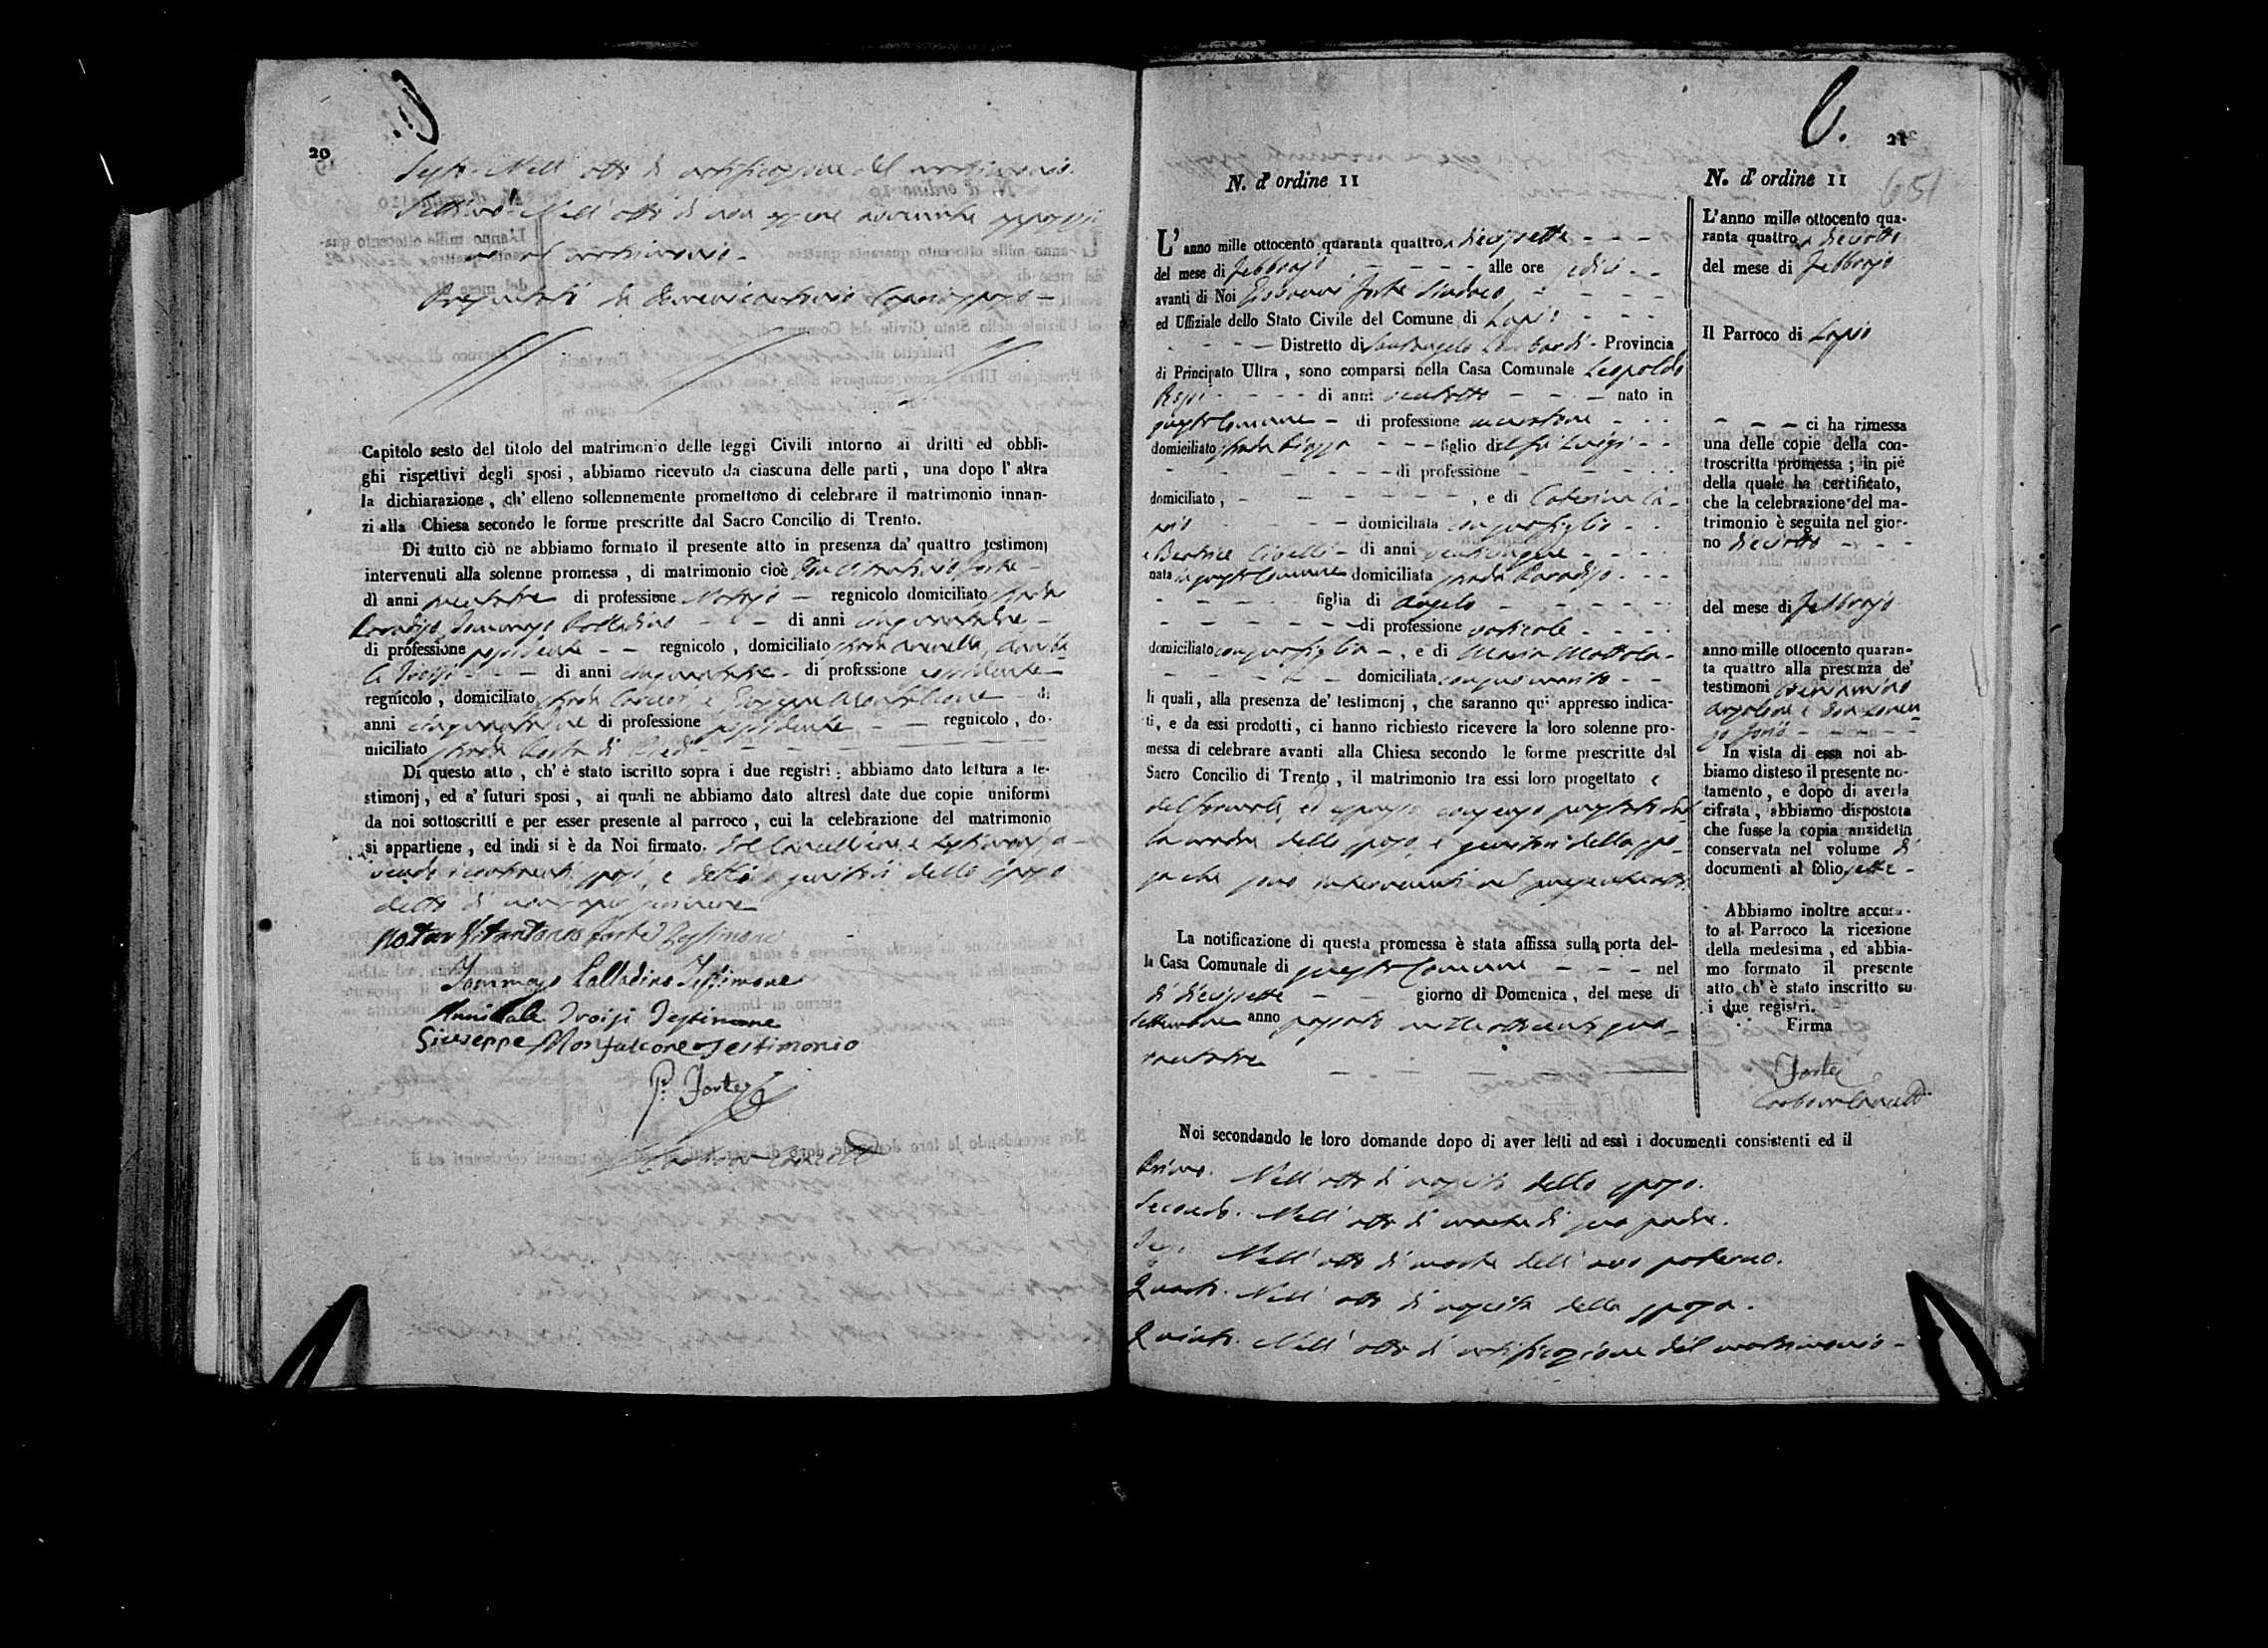 20
Sesto. Nell' atto di notificazione del matrimonio.
Settimo. Nell' atto di non essere avvenuta
al matrimonio.
da
Capitolo sesto del titolo del matrimonio delle leggi Civili intorno ai dritti ed obbli-
ghi rispettivi degli sposi, abbiamo ricevuto da ciascuna delle parti, una dopo l'altra
la dichiarazione, ch' elleno sollennemente promettono di celebrare il matrimonio innan-
zi alla Chiesa secondo le forme prescritte dal Sacro Concilio di Trento.
Di tutto ciò ne abbiamo formato il presente atto in presenza da' quattro testimonj
intervenuti alla solenne promessa, di matrimonio cioè Forte
di anni di professione Notajo regnicolo domiciliato strada
Paradiso Tommaso Palladino di anni
di professione possidente regnicolo, domiciliato strada
le Troisi di anni di professione possidente
regnicolo, domiciliato strada e Giuseppe Monfalcone di
anni di professione possidente regnicolo, do-
miciliato strada Costa di
Di questo atto, ch' è stato iscritto sopra i due registri; abbiamo dato lettura a te-
stimonj, ed a' futuri sposi, ai quali ne abbiamo dato altresì date due copie uniformi
da noi sottoscritti e per esser presente al parroco, cui la celebrazione del matrimonio
si appartiene, ed indi si è da Noi firmato. dal Cancelliere e testimonj a-
vendo i sposi, e genitori dello sposo
detto di non saper scrivere
Notar Vitantonio Forte Testimone
Tommaso Palladino Testimone
Annibale Troisi Testimone
Giuseppe Monfalcone Testimonio
Forte
6.
21
651
N. d' ordine 11
L' anno mille ottocento quaranta quattro a diecisette
del mese di Febbrajo alle ore sedici
avanti di Noi Giovanni Forte Sindaco
ed Uffiziale dello Stato Civile del Comune di Lapio
Distretto di Santangelo Lombardi Provincia
di Principato Ultra, sono comparsi nella Casa Comunale Leopoldo
di anni ventotto nato in
questo Comune di professione
domiciliato strada Piazza figlio del fu Luigi
di professione
domiciliato, , e di Caterina Ca-
domiciliata con suo figlio
e Beatrice di anni venticinque
nata in questo Comune domiciliata strada Paradiso
figlia di Angelo
di professione
domiciliato con sua figlia , e di Maria Mottola
domiciliata con suo marito
li quali, alla presenza de' testimonj, che saranno qui appresso indica-
ti, e da essi prodotti, ci hanno richiesto ricevere la loro solenne pro-
messa di celebrare avanti alla Chiesa secondo le forme prescritte dal
Sacro Concilio di Trento, il matrimonio tra essi loro progettato e
del formale, ed espresso consenso prestato dal
la madre dello sposo, e genitori della spo-
sa che sono intervenuti nel presente atto.
La notificazione di questa promessa è stata affissa sulla porta del-
la Casa Comunale di questo Comune nel
dì diecisette giorno di Domenica, del mese di
Settembre anno passato mille ottocento qua-
rantatre
N. d' ordine 11
L'anno mille ottocento qua-
ranta quattro a dieciotto
del mese di Febbrajo
Il Parroco di Lapio
ci ha rimessa
una delle copie della con-
troscritta promessa; in piè
della quale ha certificato,
che la celebrazione del ma-
trimonio è seguita nel gior-
no dieciotto
del mese di Febbrajo
anno mille ottocento quaran-
ta quattro alla presenza de'
testimoni Beniamino
e Don
In vista di essa noi ab-
biamo disteso il presente no-
tamento, e dopo di averla
cifrata, abbiamo dispostota
che fusse la copia anzidetta
conservata nel volume di
documenti al folio sette
Abbiamo inoltre accusa-
to al Parroco la ricezione
della medesima, ed abbia-
mo formato il presente
atto ch' è stato inscritto su
i due registri.
Firma
Forte
Noi secondando le loro domande dopo di aver letti ad essi i documenti consistenti ed il
Primo. Nell' atto di nascita dello sposo.
Secondo. Nell' atto di morte di suo padre.
Nell' atto di morte dell' avo paterno.
Quarto. Nell' atto di nascita della sposa.
Quinto. Nell' atto di notificazione del matrimonio